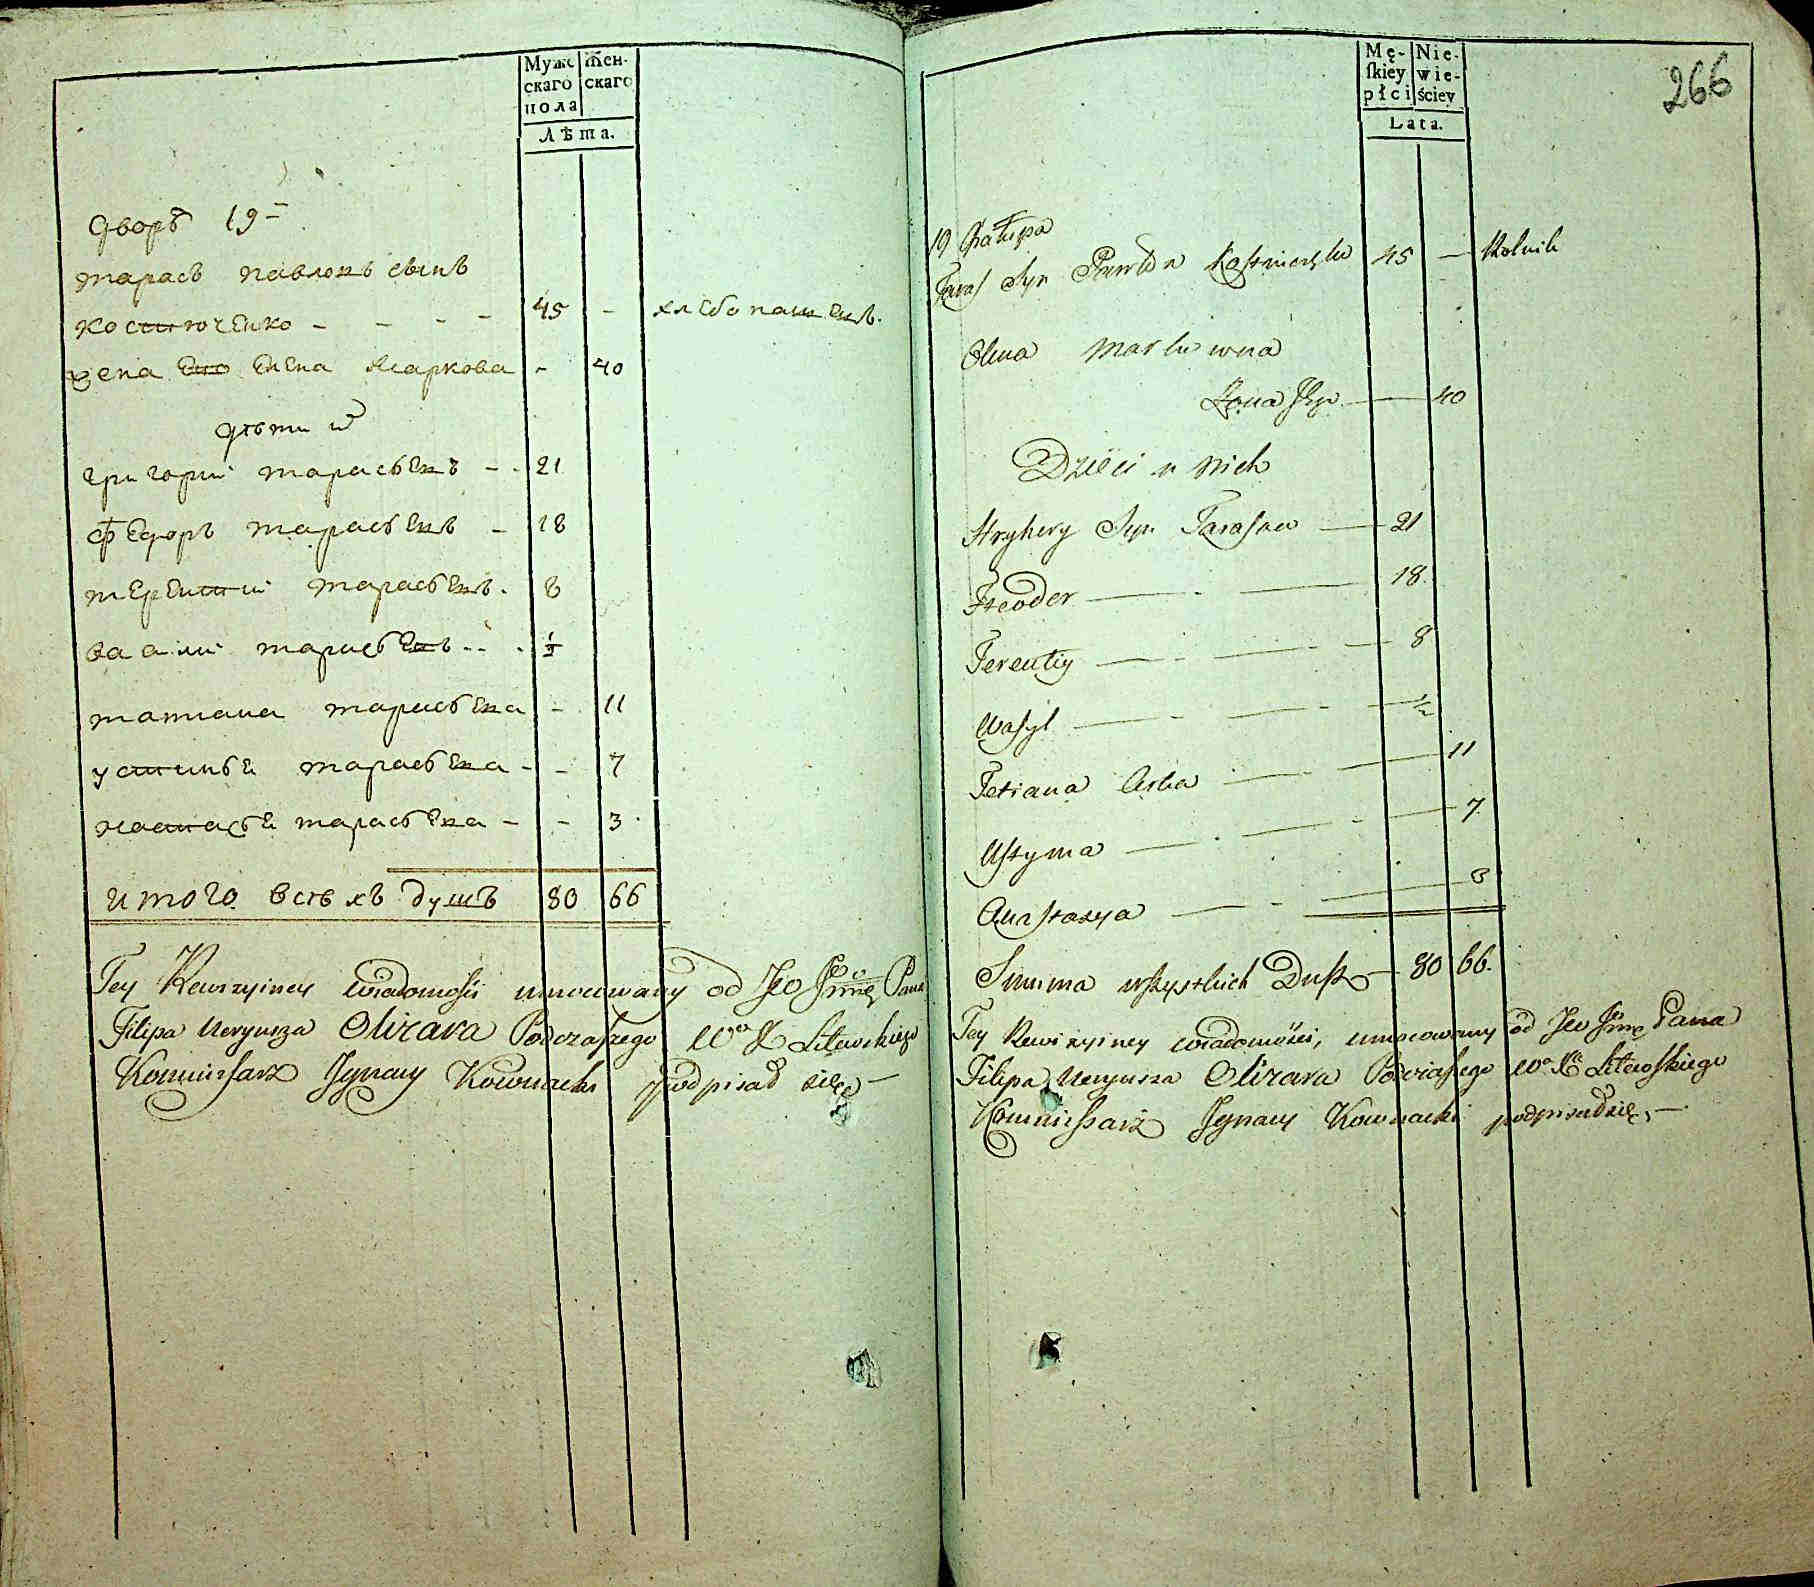 Мужс
скаго
пола
Жен-
скаго
Лѣта.
дворъ 19-
тарасъ павловъ сынъ
костюченко - - - - 45 - хлебопашецъ.
жена его елена маркова - 40
дѣти их
григории тарасьевъ - - 21
федоръ тарасьевъ - 18
терентии тарасьевъ. 8
василий тарасьевъ - - . ½
татиана тарасьева - 11
устинья тарасьева - - 7
настасья тарасьева - - 3
итого всѣхъ душъ 80 66
Tey Rewizyiney wiadomości umocowany od Jeo Pana
Filipa Neryusza Olizara Podczaszego W° X Litewskiego
Kommissarz Ignacy Kownacki podpisał się —
266
Mę-
skiey
płci
Nie-
wie-
ściey
Lata.
19 Chałupa
Taras Syn Pawła 45 — Rolnik
Olena Markowna
Żona Jego — 40
Dzieci u nich
Hryhory Syn Tarasow — 21
Fteodor — 18
Terentiy — 8
Wasyl — ½
Tetiana Corka — 11
Ustyma — 7
Anastazya — 3
Summa wszystkich Dusz — 80 66.
Tey Rewizyiney wiadomości, umocowany od Jeo Pana
Filipa Neryusza Olizara W° X° Litewskiego
Kommissarz Ignacy Kownacki podpisał się, —